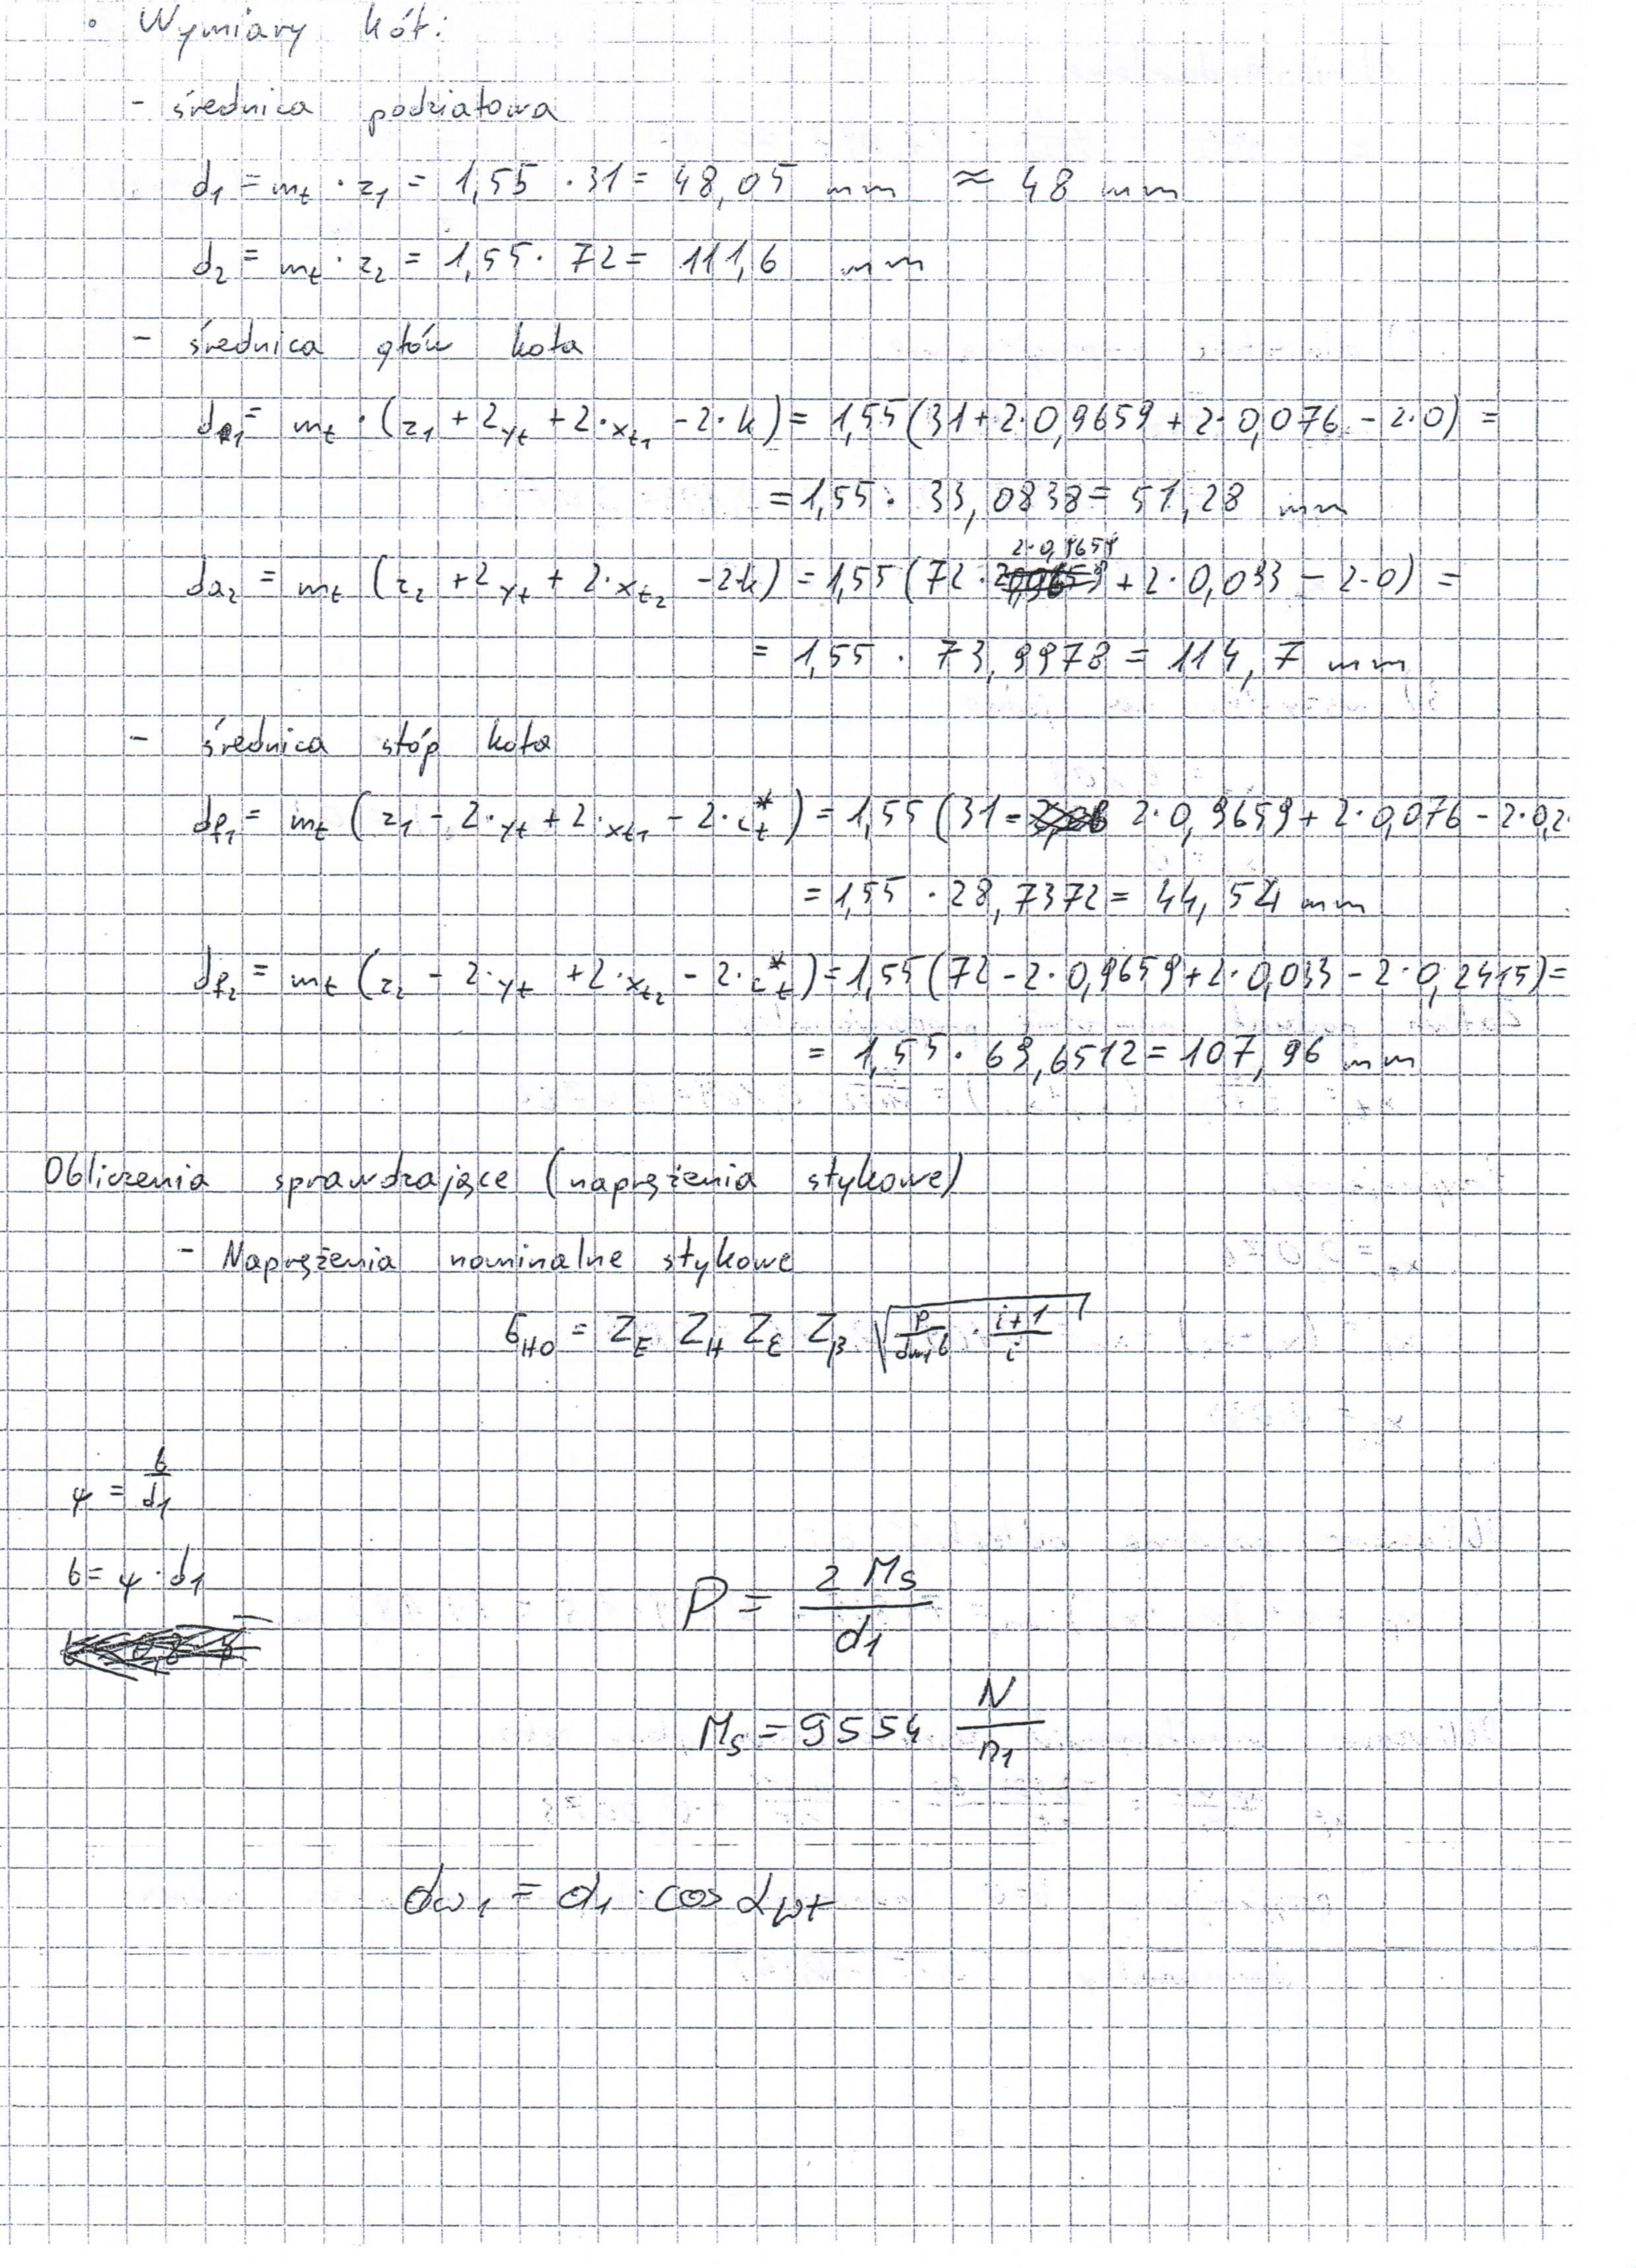 • Wymiary kół:
- średnica podziałowa
d₁ = mₜ · z₁ = 1,55 · 31 = 48,05 mm ≈ 48 mm
d₂ = mₜ · z₂ = 1,55 · 72 = 111,6 mm
- średnica głów koła
dₐ₁ = mₜ · (z₁ + 2yₜ + 2·xₜ₁ - 2·k) = 1,55 (31 + 2·0,9659 + 2·0,076 - 2·0) =
= 1,55 · 33,0838 = 51,28 mm
dₐ₂ = mₜ (z₂ + 2yₜ + 2·xₜ₂ - 2k) = 1,55 (72 · 2·0,9659 + 2·0,033 - 2·0) =
= 1,55 · 73,9978 = 114,7 mm
- średnica stóp koła
df₁ = mₜ (z₁ - 2·yₜ + 2·xₜ₁ - 2·cₜ*) = 1,55 (31 - 2·0,9659 + 2·0,076 - 2·0,2
= 1,55 · 28,7372 = 44,54 mm
df₂ = mₜ (z₂ - 2·yₜ + 2·xₜ₂ - 2·cₜ*) = 1,55 (72 - 2·0,9659 + 2·0,033 - 2·0,2415) =
= 1,55 · 69,6512 = 107,96 mm
Obliczenia sprawdzające (naprężenia stykowe)
- Naprężenia nominalne stykowe
σ_HO = Z_E Z_H Z_ε Z_β √(P/(dw₁b) · (i+1)/i)
ψ = b/d₁
b = ψ · d₁
P = 2 Ms/d₁
Ms = 9554 N/n₁
dw₁ = d₁ · cos αwt